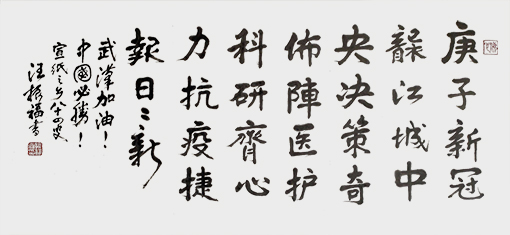 庚子新冠
江城中
央决策奇
佈陣医护
科研齊心
力抗疫捷
報日〻新
武漢加油！
中國必勝！
宣纸之乡八十四叟
汪振福書